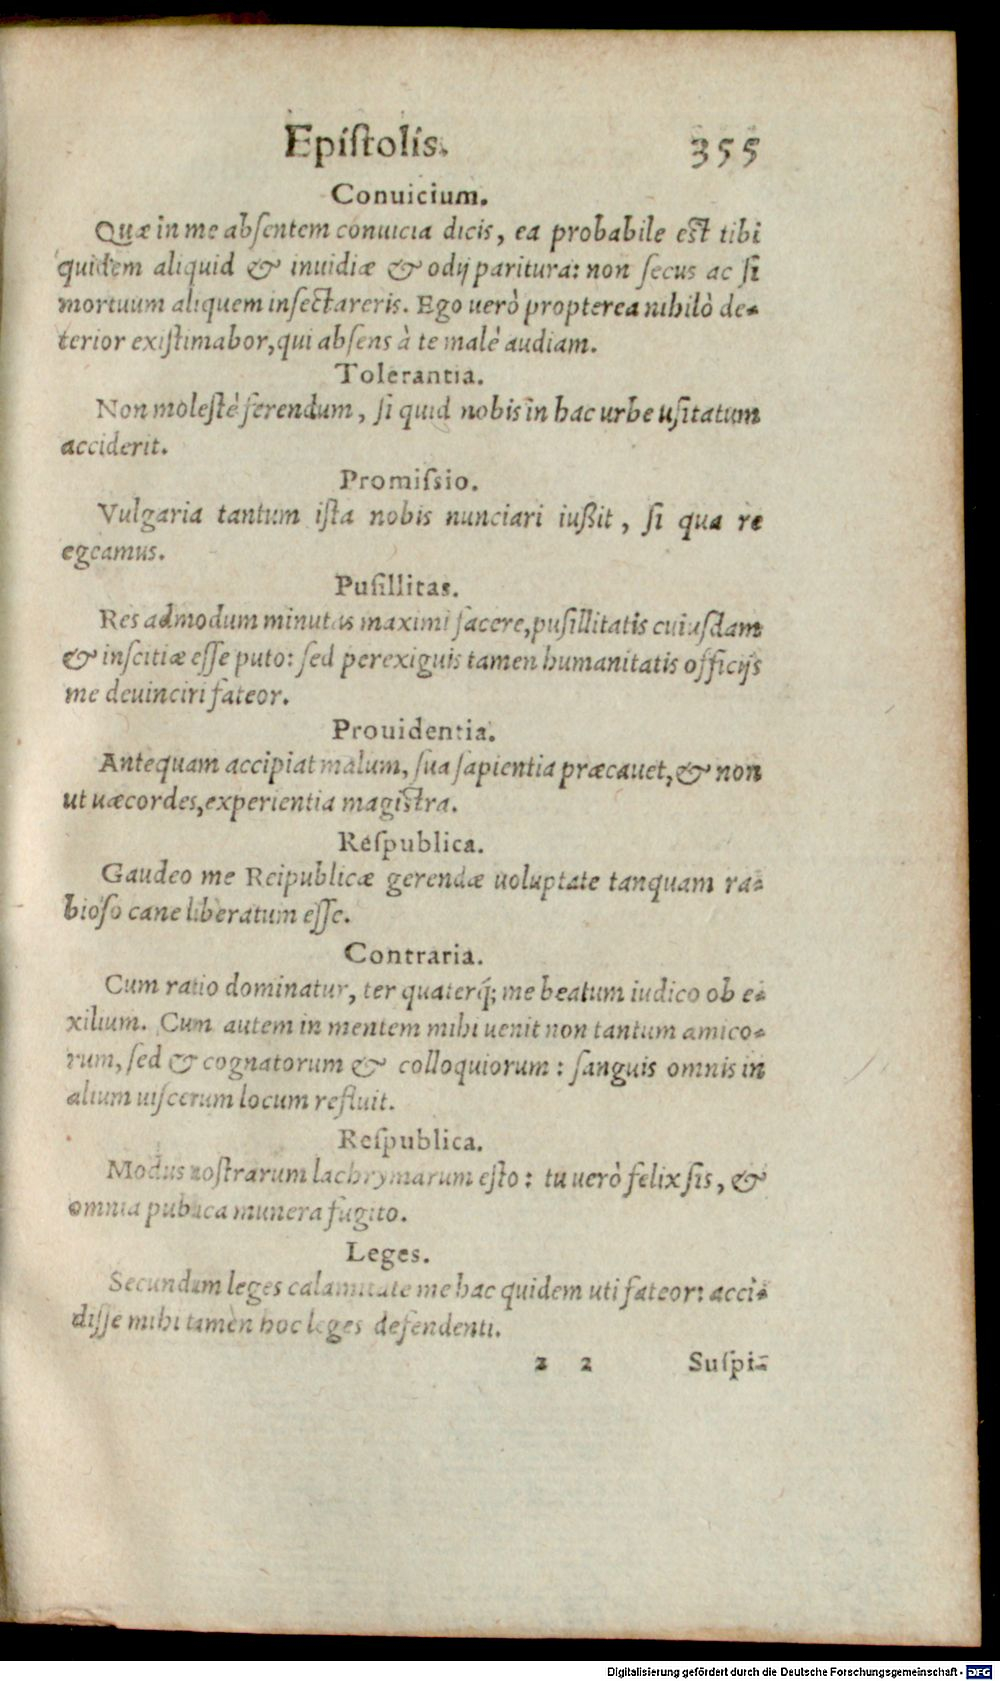 Epiſtolis. 355
Conuicium.
Quæ in me abſentem conuicia dicis, ea probabile eſt tibi
quidem aliquid & inuidiæ & odij paritura: non ſecus ac ſi
mortuum aliquem inſectareris. Ego uerò propterea nihilò de-
terior exiſtimabor, qui abſens à te malè audiam.
Tolerantia.
Non moleſtè ferendum, ſi quid nobis in hac urbe uſitatum
acciderit.
Promiſsio.
Vulgaria tantum iſta nobis nunciari iußit, ſi qua re
egeamus.
Puſillitas.
Res admodum minutas maximi facere, puſillitatis cuiuſdam
& inſcitiæ eſſe puto: ſed perexiguis tamen humanitatis officijs
me deuinciri fateor.
Prouidentia.
Antequam accipiat malum, ſua ſapientia præcauet, & non
ut uæcordes, experientia magiſtra.
Reſpublica.
Gaudeo me Reipublicæ gerendæ uoluptate tanquam ra-
bioſo cane liberatum eſſe.
Contraria.
Cum ratio dominatur, ter quaterq́; me beatum iudico ob e-
xilium. Cum autem in mentem mihi uenit non tantum amico-
rum, ſed & cognatorum & colloquiorum: ſanguis omnis in
alium uiſcerum locum refluit.
Reſpublica.
Modus noſtrarum lachrymarum eſto: tu uerò felix ſis, &
omnia publica munera fugito.
Leges.
Secundum leges calamitate me hac quidem uti fateor: acci-
diſſe mihi tamen hoc leges defendenti.
z 2 Suſpi-
Digitalisierung gefördert durch die Deutsche Forschungsgemeinschaft - DFG